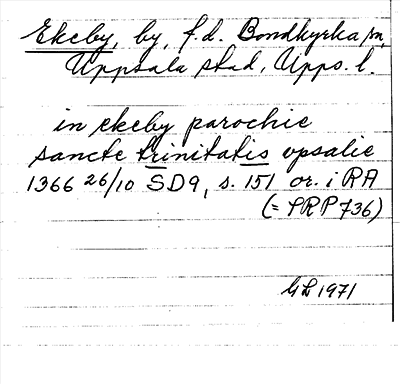 Ekeby, by, f.d. Bondkyrka sn,
Uppsala stad, Upps. l.
in ekeby parochie
sancte trinitatis vpsalie
1366 26/10 SD 9, s. 151 or. i RA
(= SRP 736)
GL 1971